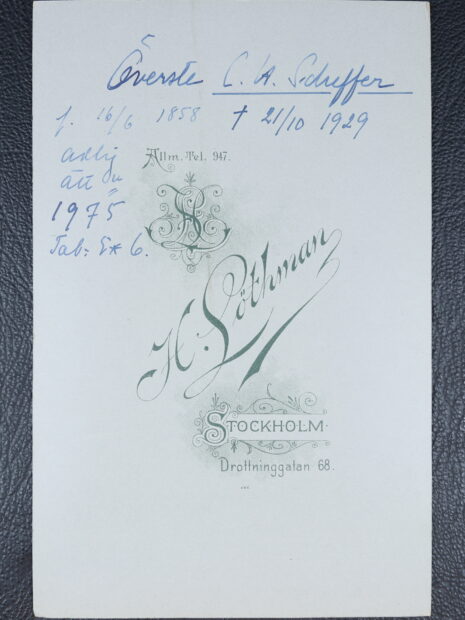 Överste C. A. Scheffer
f. 16/6 1858 † 21/10 1929
adlig
ätt
1975
Tab:
6.
Allm. Tel. 947.
H. Löthman
STOCKHOLM.
Drottninggatan 68.